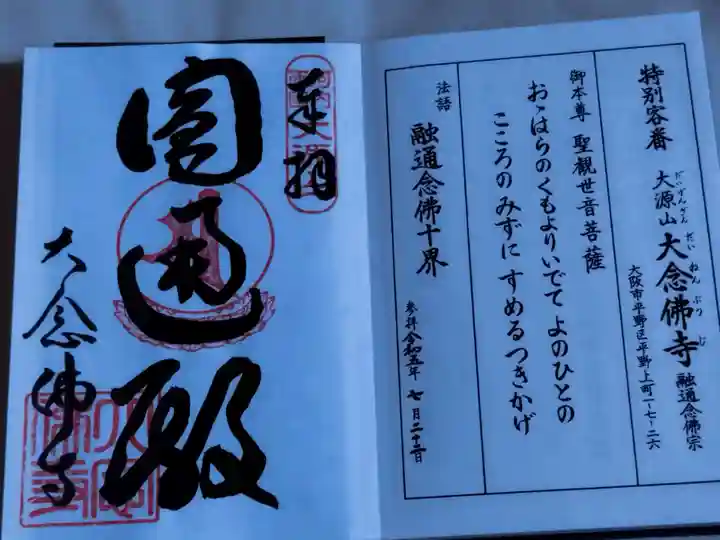 特別客番 大源山 大念佛寺 融通念佛宗
だいげんざん だいねんぶつじ
大阪市平野区平野上町一ー七ー二六
御本尊 聖観世音菩薩
おゝはらのくもよりいでて よのひとの
こころのみずに すめるつきかげ
法語 融通念佛十界
参拝令和五年 七月二十二日
奉拝
圓通殿
大念佛寺